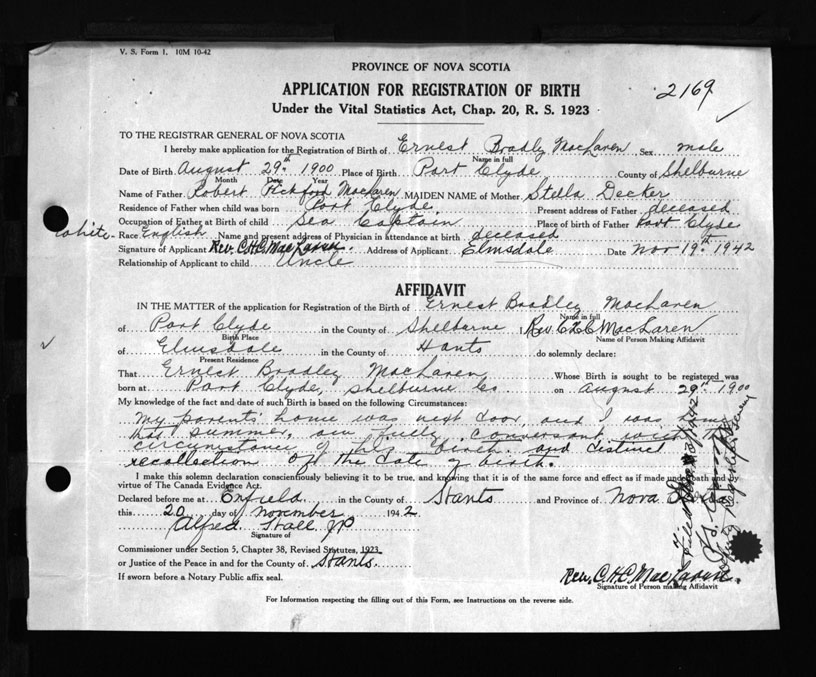 V. S. Form 1. 10M 10-42
PROVINCE OF NOVA SCOTIA
APPLICATION FOR REGISTRATION OF BIRTH
2169
Under the Vital Statistics Act, Chap. 20, R. S. 1923
TO THE REGISTRAR GENERAL OF NOVA SCOTIA
I hereby make application for the Registration of Birth of Ernest Bradly MacLaren Sex male
Name in full
Date of Birth August 29th 1900 Place of Birth Port Clyde County of Shelburne
Month Date Year
Name of Father Robert Pickford MacLaren MAIDEN NAME of Mother Stella Decker
Residence of Father when child was born Port Clyde Present address of Father deceased
Occupation of Father at Birth of child Sea Captain Place of birth of Father Port Clyde
white - Race English Name and present address of Physician in attendance at birth deceased
Signature of Applicant Rev. C.H.C. MacLaren. Address of Applicant Elmsdale Date Nov 19th 1942
Relationship of Applicant to child Uncle
AFFIDAVIT
IN THE MATTER of the application for Registration of the Birth of Ernest Bradley MacLaren
Name in full
of Port Clyde in the County of Shelburne Rev. C.H.C MacLaren
Birth Place Name of Person Making Affidavit
of Elmsdale in the County of Hants do solemnly declare:
Present Residence
That Ernest Bradley MacLaren Whose Birth is sought to be registered was
born at Port Clyde, Shelburne Co on August 29th 1900
My knowledge of the fact and date of Birth is based on the following Circumstances:
My parents' home was next door, and I was home
that summer, am fully conversant with
circumstance of his birth and distinct
recollection of the date of birth.
I make this solemn declaration conscientiously believing it to be true, and knowing that it is of the same force and effect as if made under oath and by
virtue of The Canada Evidence Act.
Declared before me at Enfield in the County of Hants and Province of Nova Scotia
this 20 day of November 1942
Alfred Hall JP
Signature of
Commissioner under Section 5, Chapter 38, Revised Statutes, 1923
or Justice of the Peace in and for the County of Hants.
If sworn before a Notary Public affix seal.
Rev. C.H.C. MacLaren.
Signature of Person making Affidavit
For Information respecting the filling out of this Form, see Instructions on the reverse side.